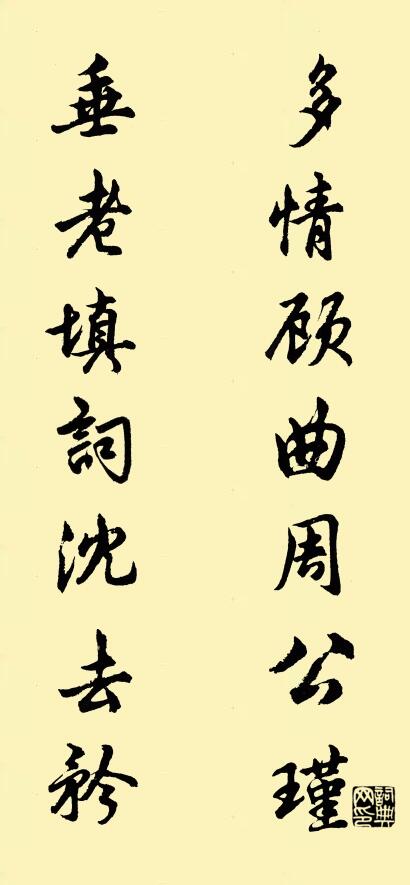 多情顾曲周公瑾
垂老填詞沈去矜
詞典网印